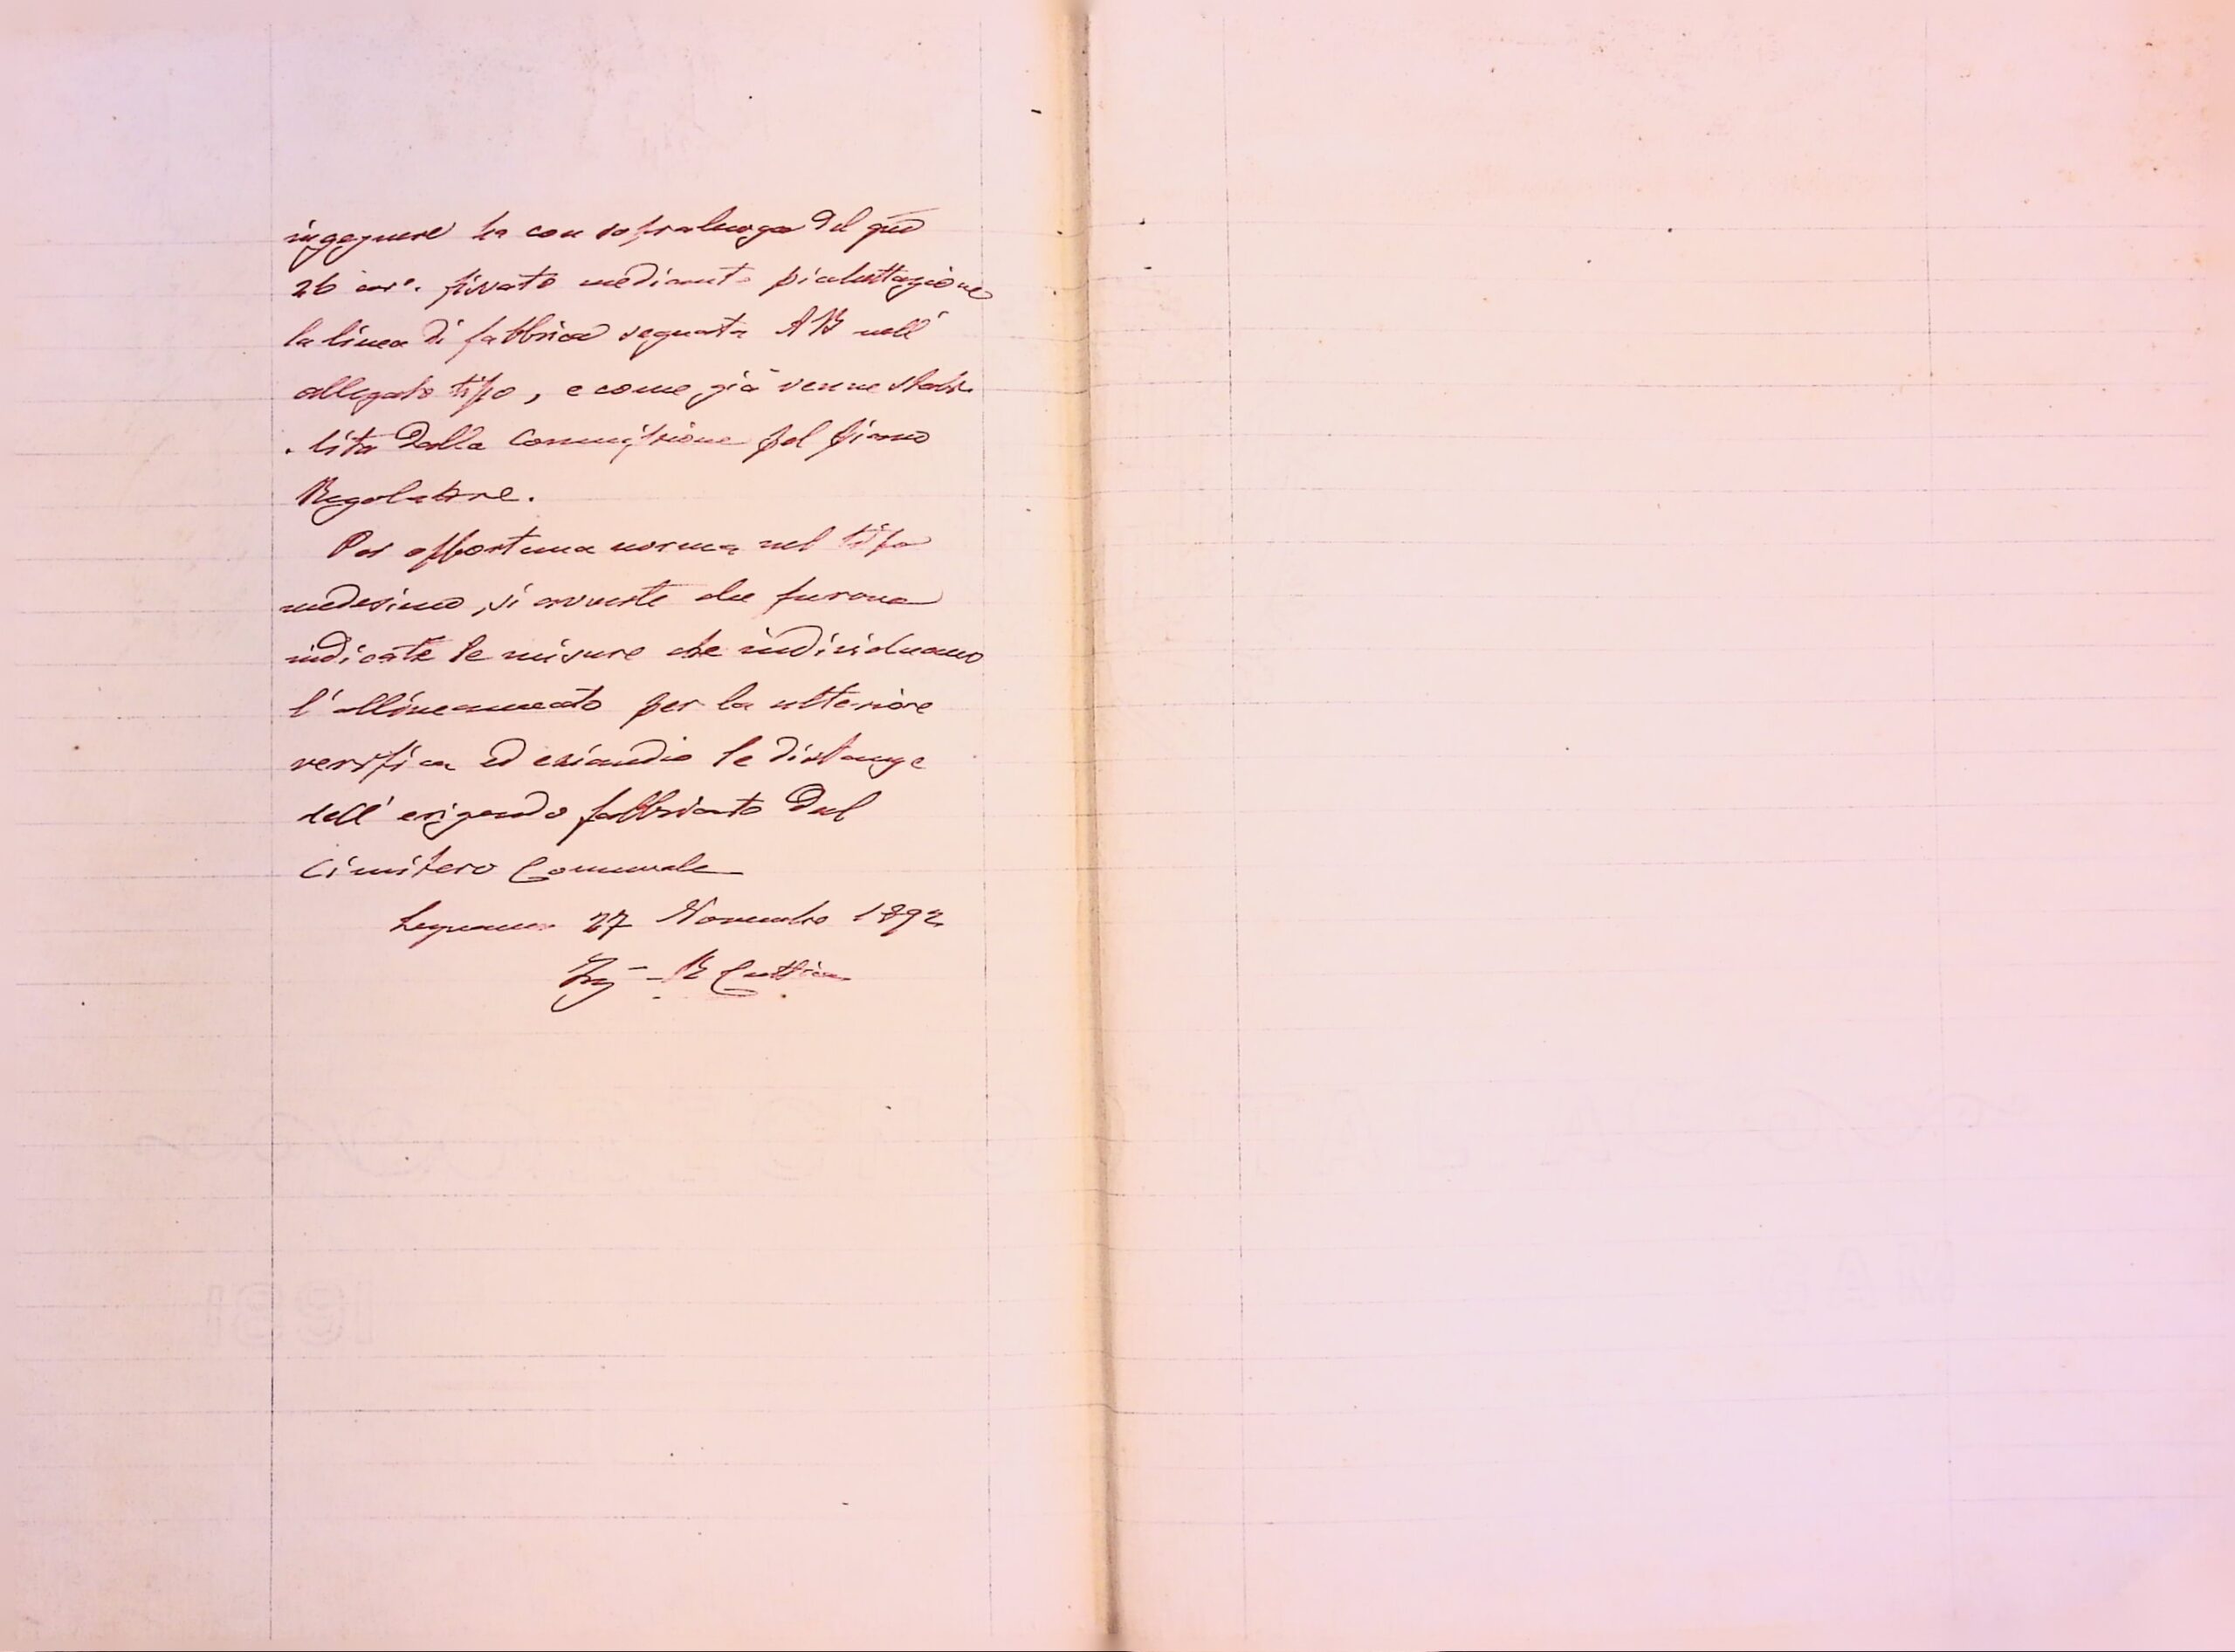 ingegnere ha con sopraluogo del gno
26 corr. fissato mediante picchettazione
la linea di fabbrica segnata AB nell'
allegato tipo, e come già venne stabi
lita dalla Commissione pel piano
Regolatore.
Per opportuna norma nel tipo
medesimo, si avverte che furono
indicate le misure che individuano
l'allineamento per la ulteriore
verifica ed eziandio le distanze
dell' erigendo fabbricato dal
Cimitero Comunale
Legnano 27 Novembre 1892
Ing. R
1891